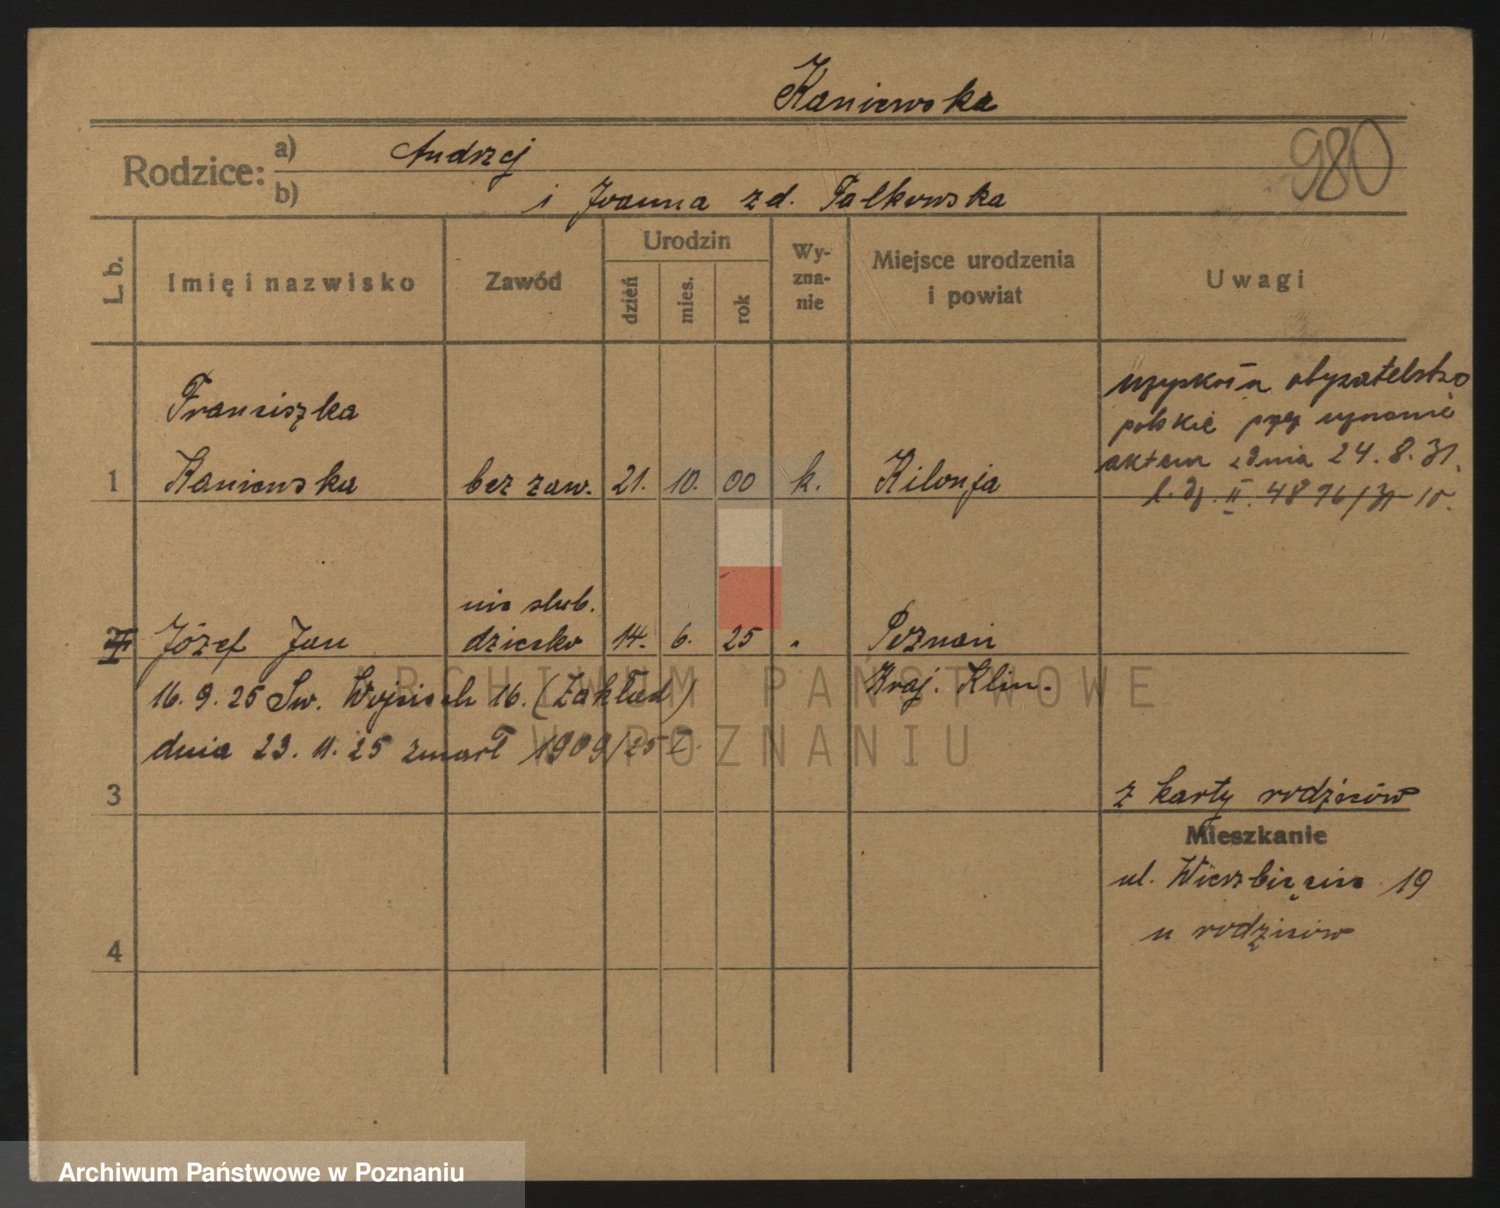 Kaniewska
980
Rodzice: a) Andrzej
b) i Joanna zd. Falkowska
L. b.
Imię i nazwisko
Zawód
Urodzin
dzień
mies.
rok
Wy-
zna-
nie
Miejsce urodzenia
i powiat
Uwagi
Franciszka
1 Kaniewska bez zaw. 21. 10. 00 k. Kilonja
obywatelstwo
polskie
aktem z dnia 24.8.31.
nieślub.
Józef Jan dziecko 14. 6. 25 " Poznań
16.9.25 Św. Wojciech 16. (Zakład) Kraj. Klin.
dnia 23.11.25 zmarł 1909/25
3
z karty rodziców
Mieszkanie
ul. Wierzbięcice 19
u rodziców
4
ARCHIWUM PAŃSTWOWE
W POZNANIU
Archiwum Państwowe w Poznaniu